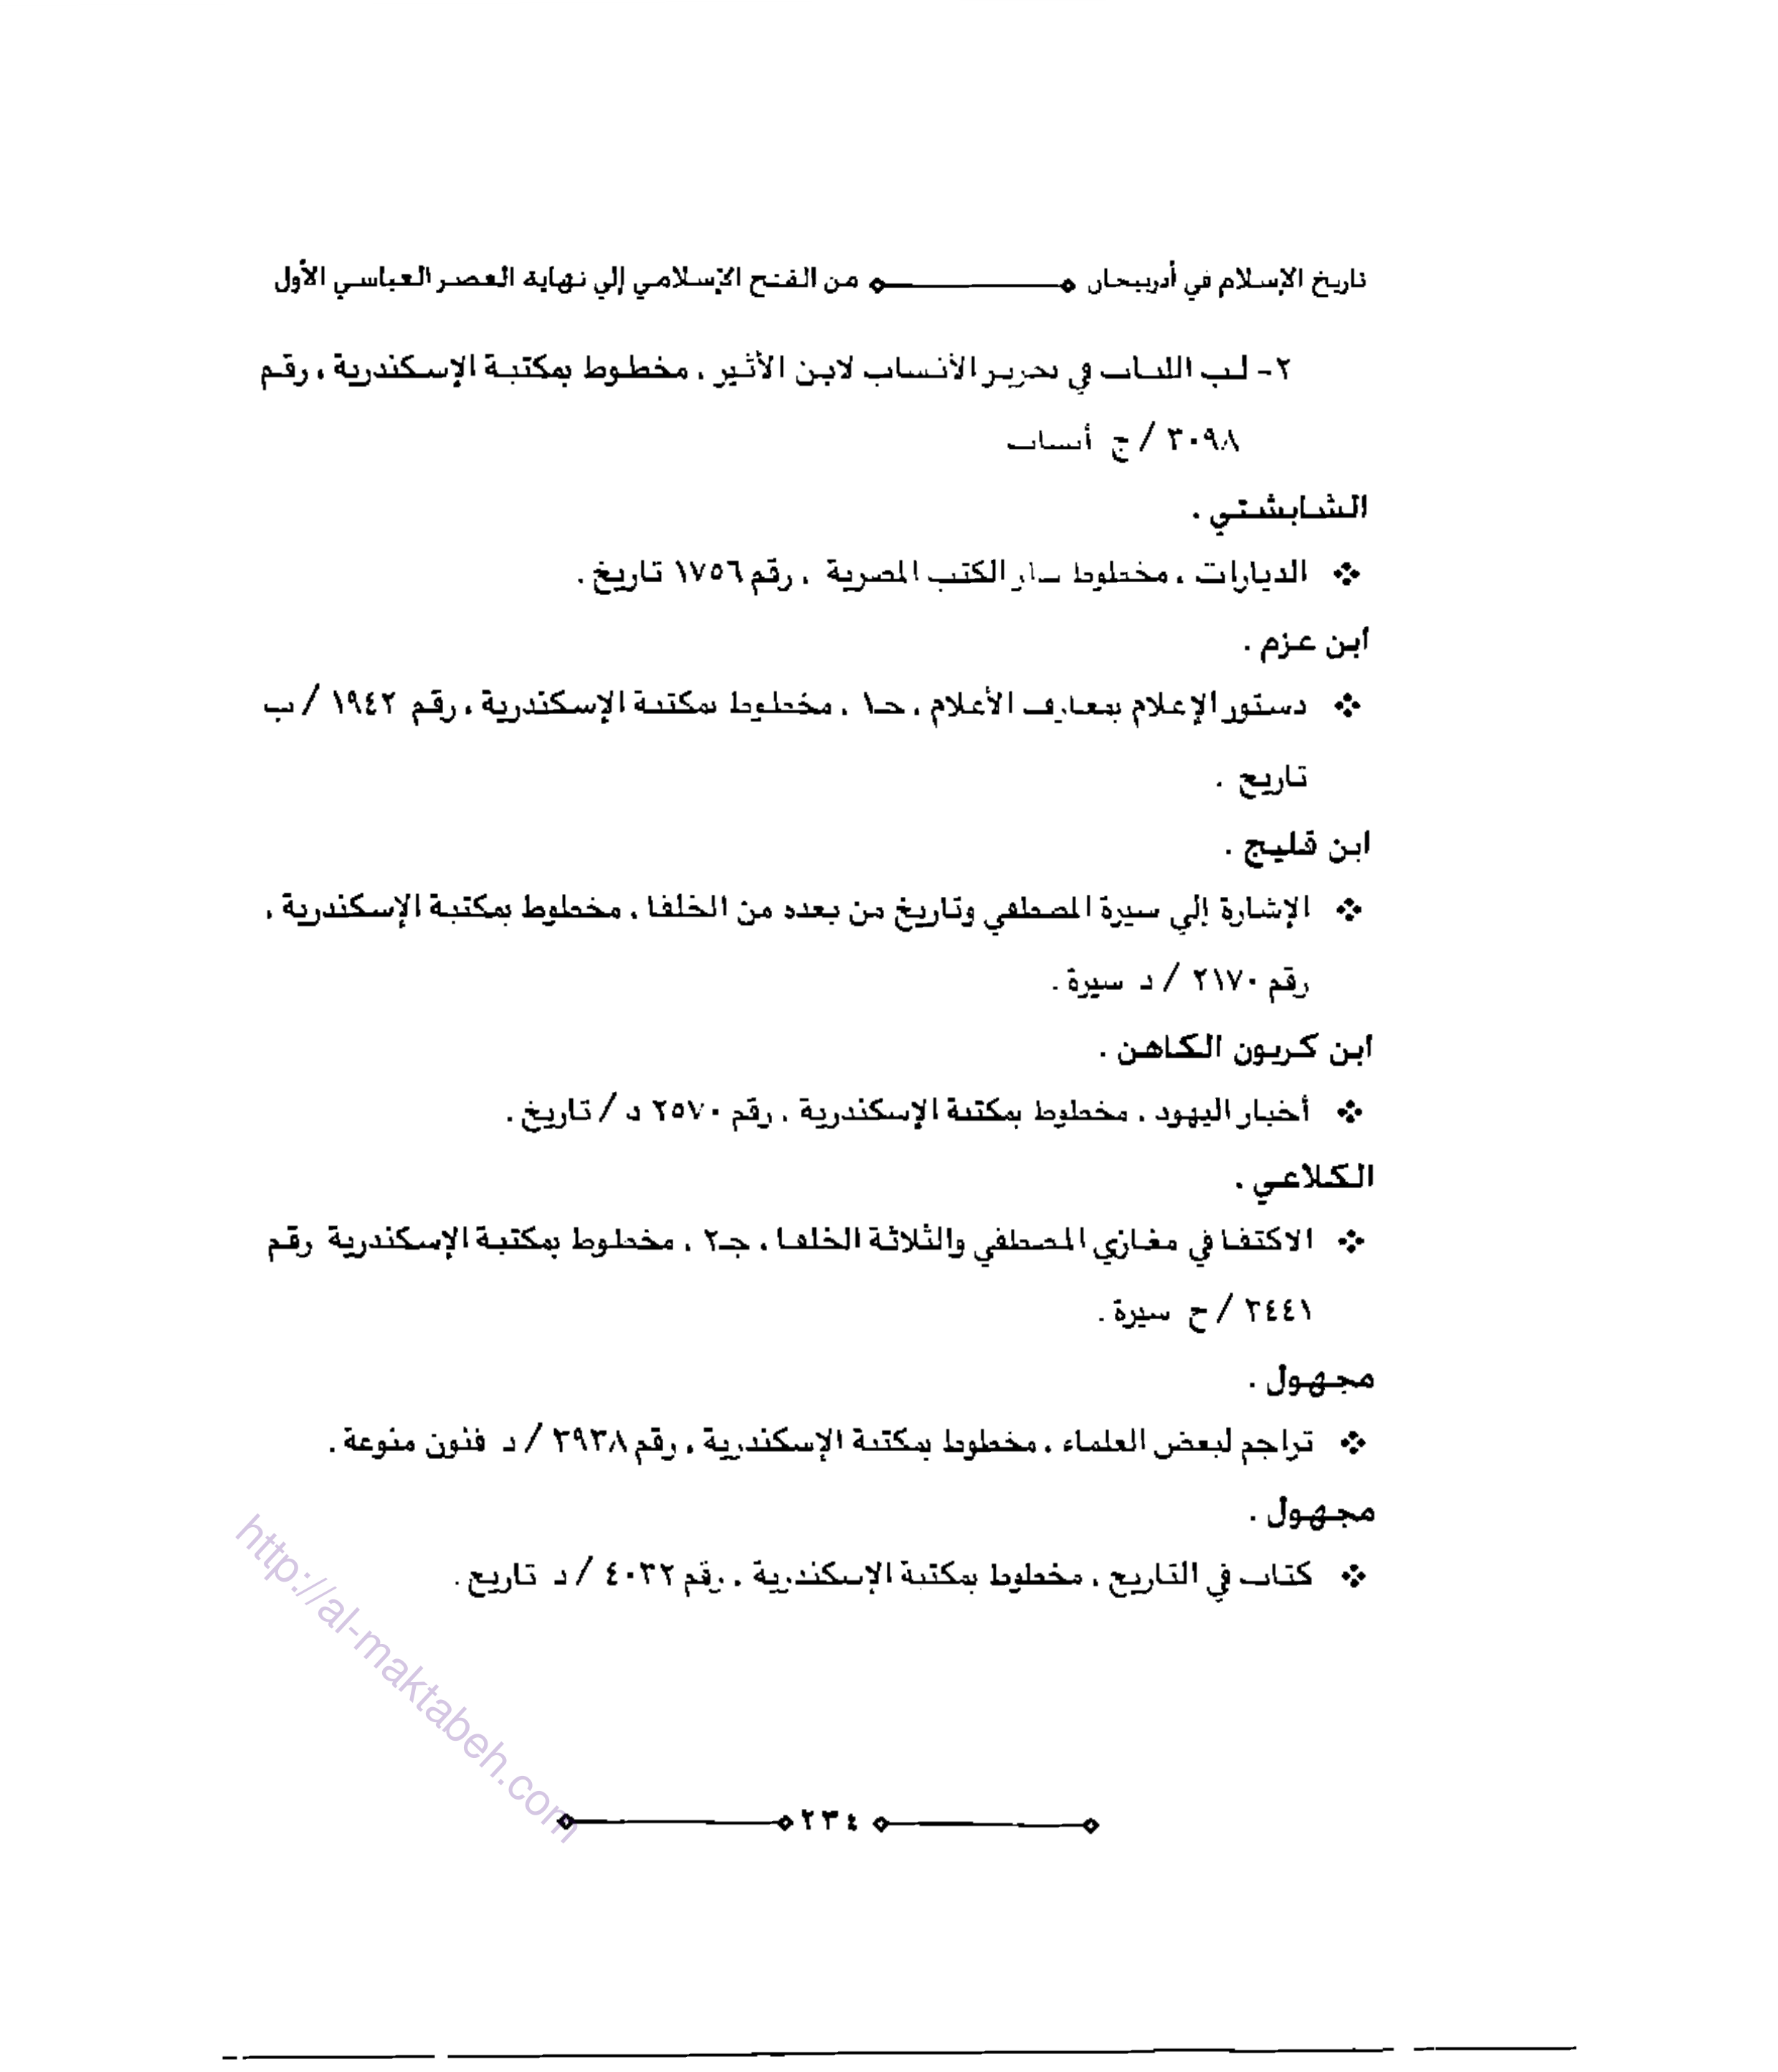 تاريخ الإسلام في أذربيجان من الفتح الإسلامي إلي نهاية العصر العباسي الأول
٢- لب اللباب في تحرير الأنساب لابن الأثير ، مخطوط بمكتبة الإسكندرية ، رقم
٣٠٩٨ / ج أنساب
الشابشتي .
❖ الديارات ، مخطوط بدار الكتب المصرية ، رقم ١٧٥٦ تاريخ .
ابن عزم .
❖ دستور الإعلام بمعارف الأعلام ، جـ١ ، مخطوط بمكتبة الإسكندرية ، رقم ١٩٤٢ / ب
تاريخ .
ابن قليج .
❖ الإشارة إلي سيرة المصطفي وتاريخ من بعده من الخلفا ، مخطوط بمكتبة الإسكندرية ،
رقم ٢١٧٠ / د سيرة .
ابن كريون الكاهن .
❖ أخبار اليهود ، مخطوط بمكتبة الإسكندرية ، رقم ٢٥٧٠ د / تاريخ .
الكلاعي .
❖ الاكتفا في مغازي المصطفي والثلاثة الخلفا ، جـ٢ ، مخطوط بمكتبة الإسكندرية رقم
٢٤٤١ / ح سيرة .
مجهول .
❖ تراجم لبعض العلماء ، مخطوط بمكتبة الإسكندرية ، رقم ٣٩٣٨ / د فنون منوعة .
مجهول .
❖ كتاب في التاريخ ، مخطوط بمكتبة الإسكندرية ، رقم ٤٠٣٢ / د تاريخ .
http://al-maktabeh.com
٢٣٤